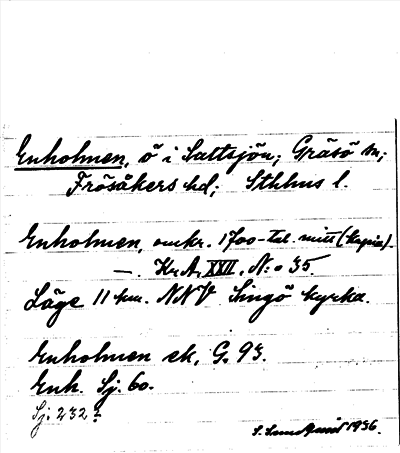 Enholmen, ö i Saltsjön; Gräsö sn;
Frösåkers hd; Sthlms l.
Enholmen, omkr. 1700-tal. mitt (kopia).
—. Kr. A. XXII. N:o 35.
Läge 11 km. NNV Singö kyrka.
Enholmen ek, G. 93.
Enh. Sj. 60.
Sj. 232
S. Sundquist 1936.